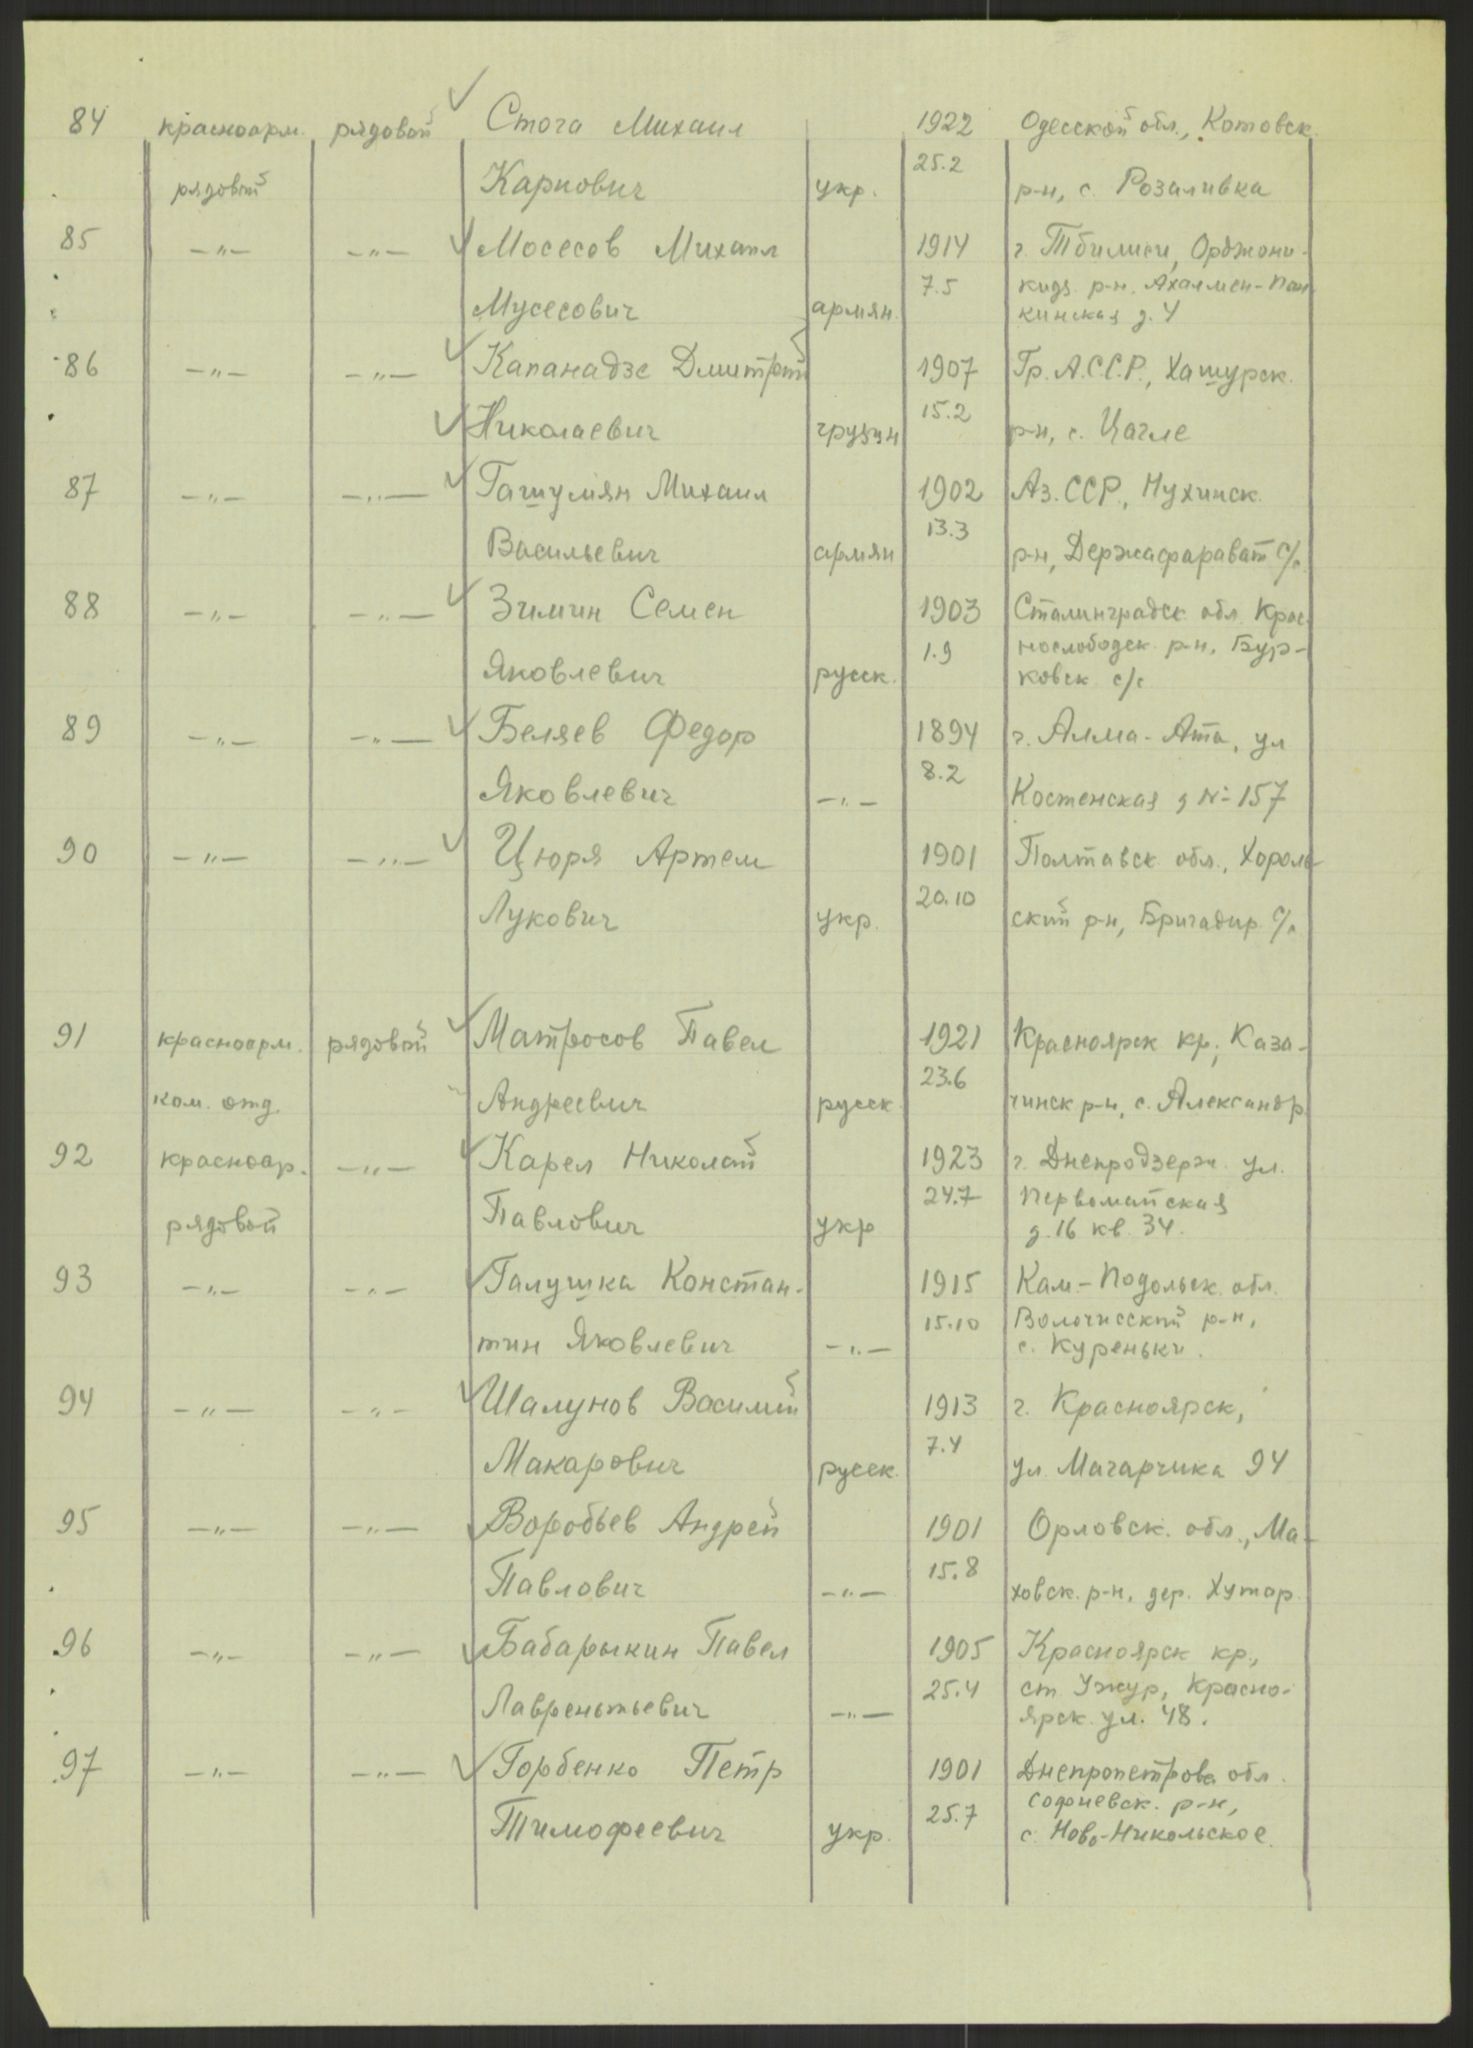 84 красноарм. рядовой Стога Михаил 1922 Одесской обл., Котовск.
рядовой Карпович укр. 25.2 р-н, с. Розаливка
85 —"— —"— Мосесов Михаил 1914 г. Тбилиси, Орджони-
7.5 кидз. р-н. Ахалмен-Пан
Мусесович армян. кинская д. 4
86 —"— —"— Капанадзе Дмитрий 1907 Гр. А.С.С.Р., Хашурск.
Николаевич грузин 15.2 р-н, с. Цагле
87 —"— —"— Гашумян Михаил 1902 Аз. ССР., Нухинск.
Васильевич армян 13.3 р-н, Держафарават с/с
88 —"— —"— Зимин Семен 1903 Сталинградск. обл. Крас
1.9 нослободск. р-н, Бур-
Яковлевич русск. ковск с/с
89 —"— —"— Беляев Федор 1894 г. Алма-Ата, ул
Яковлевич —"— 8.2 Костенская д №-157
90 —"— —"— Цюря Артем 1901 Полтавск обл., Хороль-
Лукович укр. 20.10 ский р-н, Бригадир. с/с
91 красноарм. рядовой Матросов Павел 1921 Красноярск кр., Каза-
ком. отд. Андреевич русск. 23.6 чинск р-н, с. Александр.
92 красноар. —"— Карел Николай 1923 г. Днепродзерж. ул.
24.7 Первомайская
рядовой Павлович укр д. 16 кв. 34.
93 —"— —"— Галушка Констан- 1915 Кам-Подольск. обл.
15.10 Волочисский р-н,
тин Яковлевич —"— с. Куреньки.
94 —"— —"— Шалунов Василий 1913 г. Красноярск,
Макарович русск. 7.4 ул. Магарчика 94
95 —"— —"— Воробьев Андрей 1901 Орловск. обл., Ма-
Павлович —"— 15.8 ховск. р-н, дер. Хутор.
96 —"— —"— Бабарыкин Павел 1905 Красноярск кр.,
25.4 ст. Ужур, Красно-
Лаврентьевич —"— ярск. ул. 48.
97 —"— —"— Горбенко Петр 1901 Днепропетровс обл.
25.7 Софиевск. р-н,
Тимофеевич укр. с. Ново-Никольское.